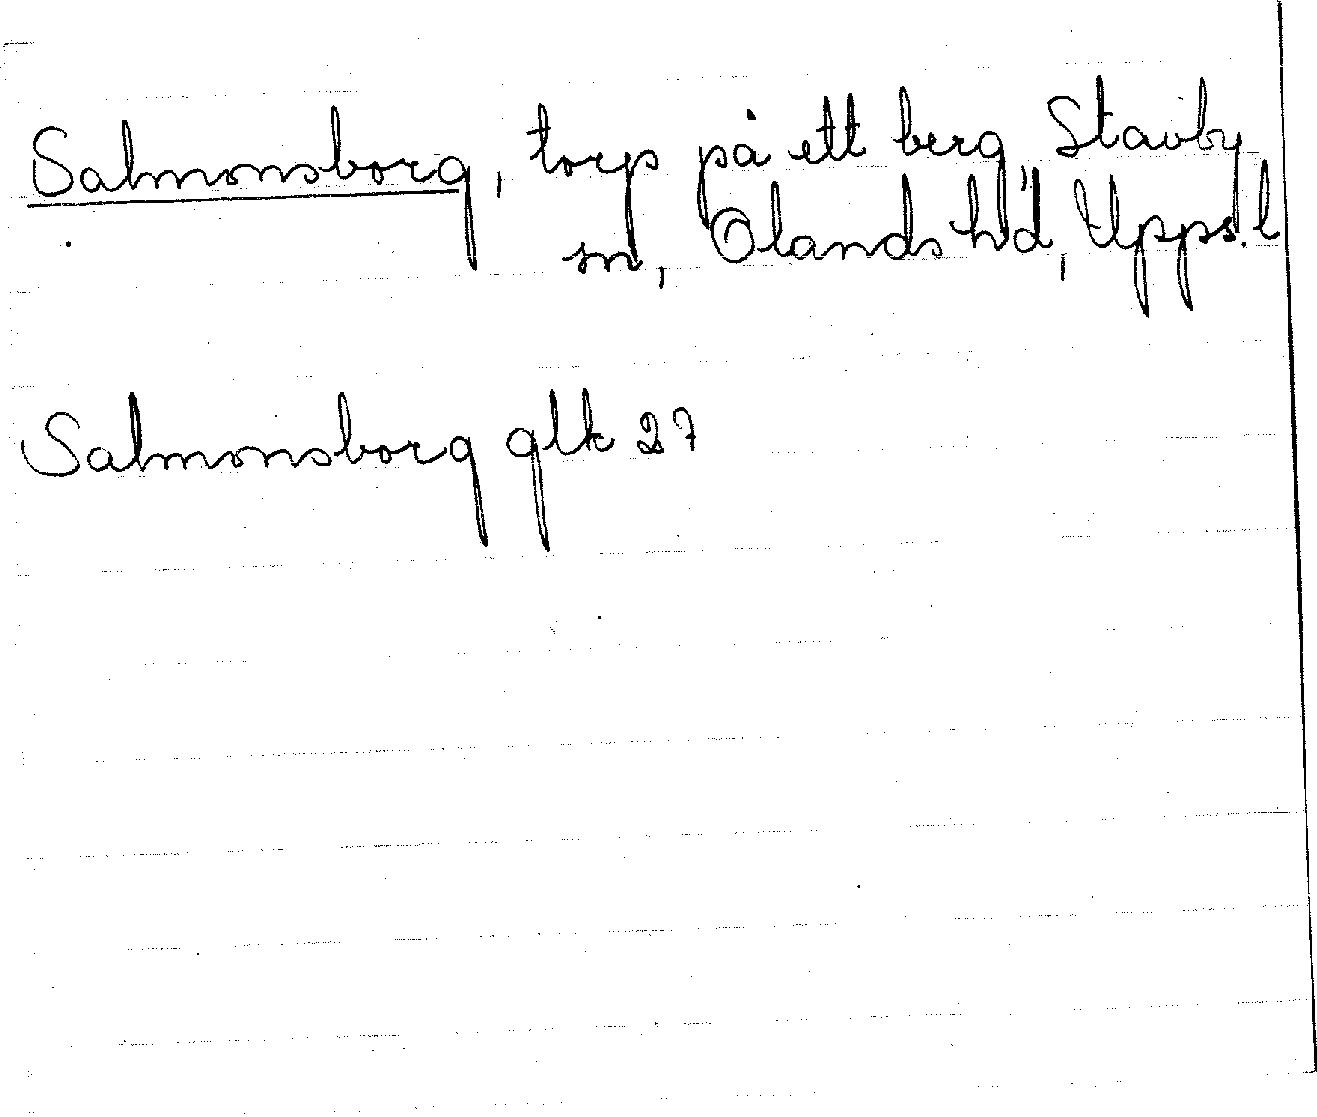 Salmonsborg, torp på ett berg, Stavby
sn, Olands hd, Upps. l
Salmonsborg glk 27